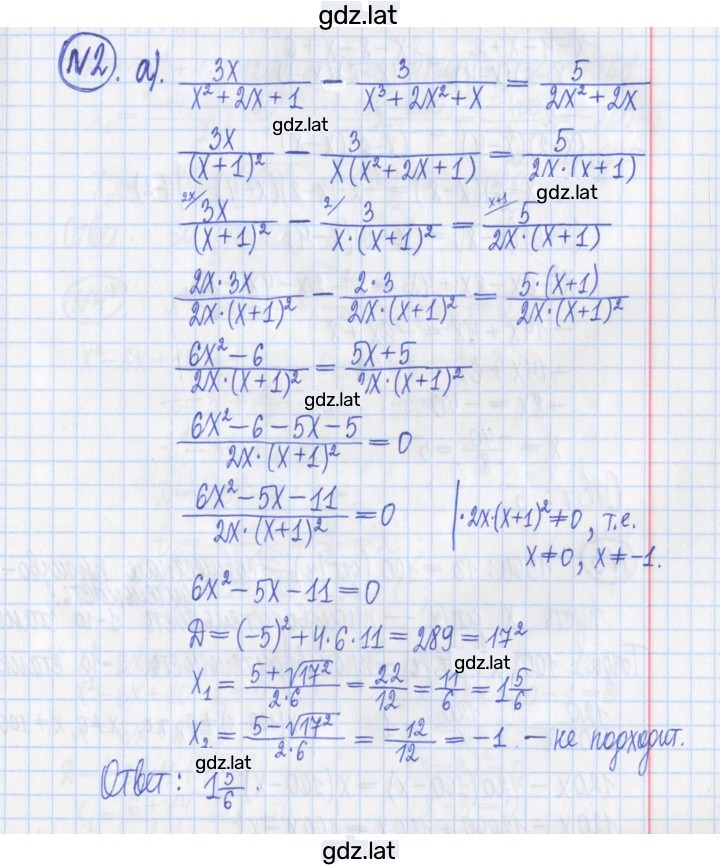 gdz.lat
№2. а). 3x/(x² + 2x + 1) − 3/(x³ + 2x² + x) = 5/(2x² + 2x)
gdz.lat
3x/(x+1)² − 3/(x(x² + 2x + 1)) = 5/(2x·(x+1))
gdz.lat
2x/ 3x/(x+1)² − 2/ 3/(x·(x+1)²) = x+1/ 5/(2x·(x+1))
2x·3x/(2x·(x+1)²) − 2·3/(2x·(x+1)²) = 5·(x+1)/(2x·(x+1)²)
(6x² − 6)/(2x·(x+1)²) = (5x + 5)/(2x·(x+1)²)
gdz.lat
(6x² − 6 − 5x − 5)/(2x·(x+1)²) = 0
(6x² − 5x − 11)/(2x·(x+1)²) = 0 | ·2x·(x+1)² ≠ 0, т.е.
x ≠ 0, x ≠ −1.
6x² − 5x − 11 = 0
D = (−5)² + 4·6·11 = 289 = 17²
gdz.lat
x₁ = (5 + √17²)/(2·6) = 22/12 = 11/6 = 1 5/6
x₂ = (5 − √17²)/(2·6) = −12/12 = −1 − не подходит.
gdz.lat
Ответ: 1 5/6.
gdz.lat